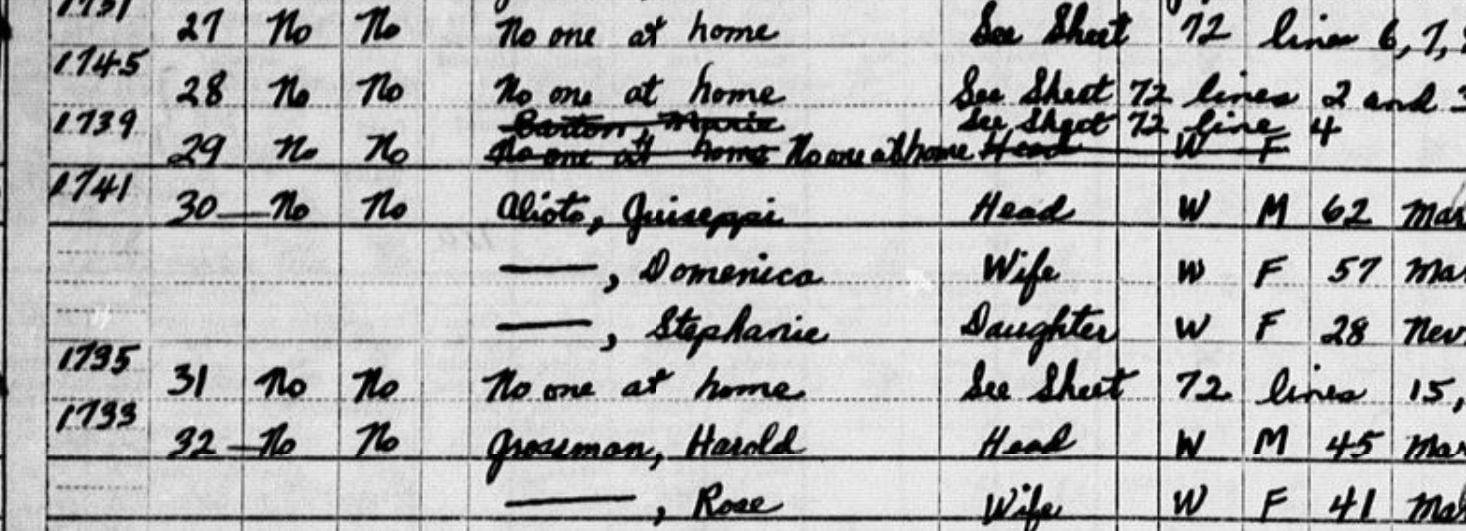 1731 27 No No No one at home See Sheet 72 lines 6, 7,
1745 28 No No No one at home See Sheet 72 lines 2 and 3
Barton, Marie See Sheet 72 line 4
1739 29 No No No one at home No one at home Head W F
1741 30 No No Alioto, Guiseppi Head W M 62 Mar
, Domenica Wife W F 57 Mar
, Stephanie Daughter W F 28 Nev
1735 31 No No No one at home See Sheet 72 lines 15,
1733 32 No No Grossman, Harold Head W M 45 Mar
, Rose Wife W F 41 Mar